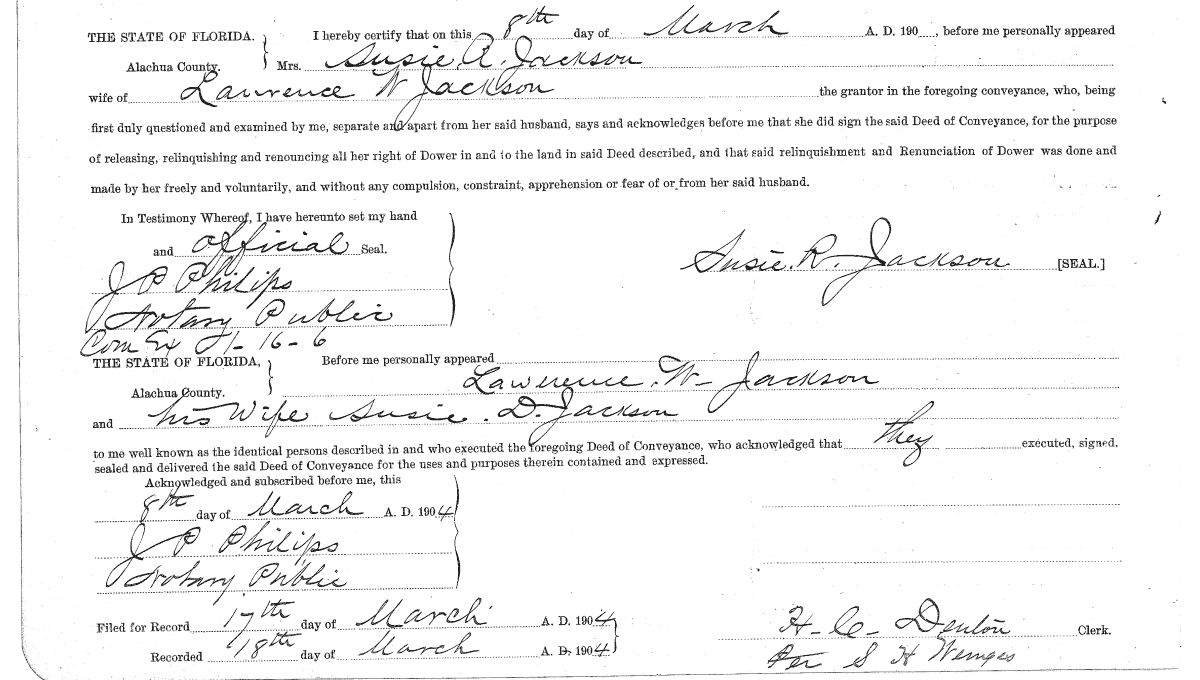 THE STATE OF FLORIDA. } I hereby certify that on this 8th day of March A. D. 190 , before me personally appeared
Alachua County. Mrs. Susie R. Jackson
wife of Lawrence W Jackson the grantor in the foregoing conveyance, who, being
first duly questioned and examined by me, separate and apart from her said husband, says and acknowledges before me that she did sign the said Deed of Conveyance, for the purpose
of releasing, relinquishing and renouncing all her right of Dower in and to the land in said Deed described, and that said relinquishment and Renunciation of Dower was done and
made by her freely and voluntarily, and without any compulsion, constraint, apprehension or fear of or from her said husband.
In Testimony Whereof, I have hereunto set my hand
and official Seal.
Susie. R. Jackson [SEAL.]
J P Philips
Notary Public
Com Ex 1-16-6
THE STATE OF FLORIDA, } Before me personally appeared
Alachua County. Lawerence. W- Jackson
and his Wife Susie. D. Jackson
to me well known as the identical persons described in and who executed the foregoing Deed of Conveyance, who acknowledged that they executed, signed,
sealed and delivered the said Deed of Conveyance for the uses and purposes therein contained and expressed.
Acknowledged and subscribed before me, this
8th day of March A. D. 1904
J P Philips
Notary Public
Filed for Record 17th day of March A. D. 1904
Recorded 18th day of March A. D. 1904
H- C- Denton Clerk.
Per S H Wienges